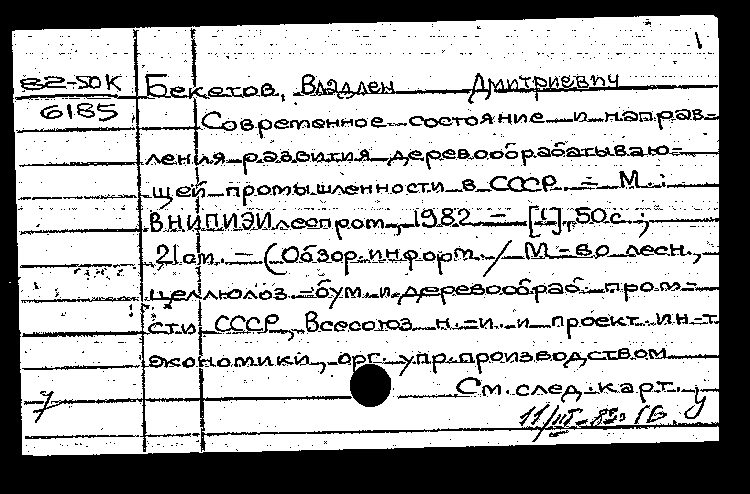 1
82-50К
6185
Бекетов, Владлен Дмитриевич
Современное состояние и направ-
ления развития деревообрабатываю-
щей промышленности в СССР. - М.:
ВНИПИЭИлеспром, 1982 - [1], 50 с.;
21 см. - (Обзор.информ. / М-во лесн.,
целлюлоз.-бум. и деревообраб. пром-
сти СССР, Всесоюз. н.-и. и проект. ин-т
экономики, орг. упр.производством
См.след.карт.
7
у